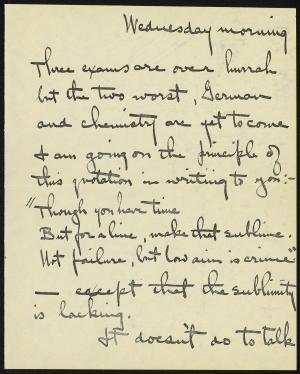 Wednesday morning
Three exams are over hurrah
but the two worst, German
and chemistry are yet to come
I am going on the principle of
this quotation in writing to you:-
"Though you have time
But for a line, make that sublime.
Not failure, but low aim is crime"
— except that the sublimity
is lacking.
It doesn't do to talk